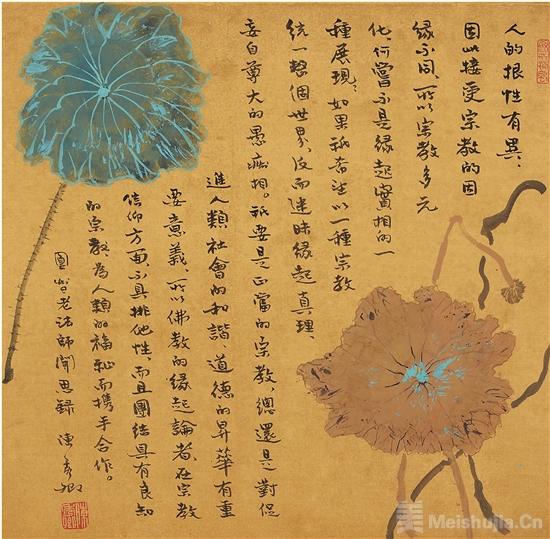 人的根性有異，
因此接受宗教的因
緣不同，所以宗教多元
化，何嘗不是緣起實相的一
種展現，如果祇希望以一種宗教
統一整個世界，反而迷昧緣起真理、
妄自尊大的愚癡相。祇要是正當的宗教，總還是對促
進人類社會的和諧、道德的昇華有重
要意義，所以佛教的緣起論者，在宗教
信仰方面，不具排他性，而且團結具有良知
的宗教，為人類的福祉而携手合作。
聞思錄 陳彥卿
Meishujia.Cn